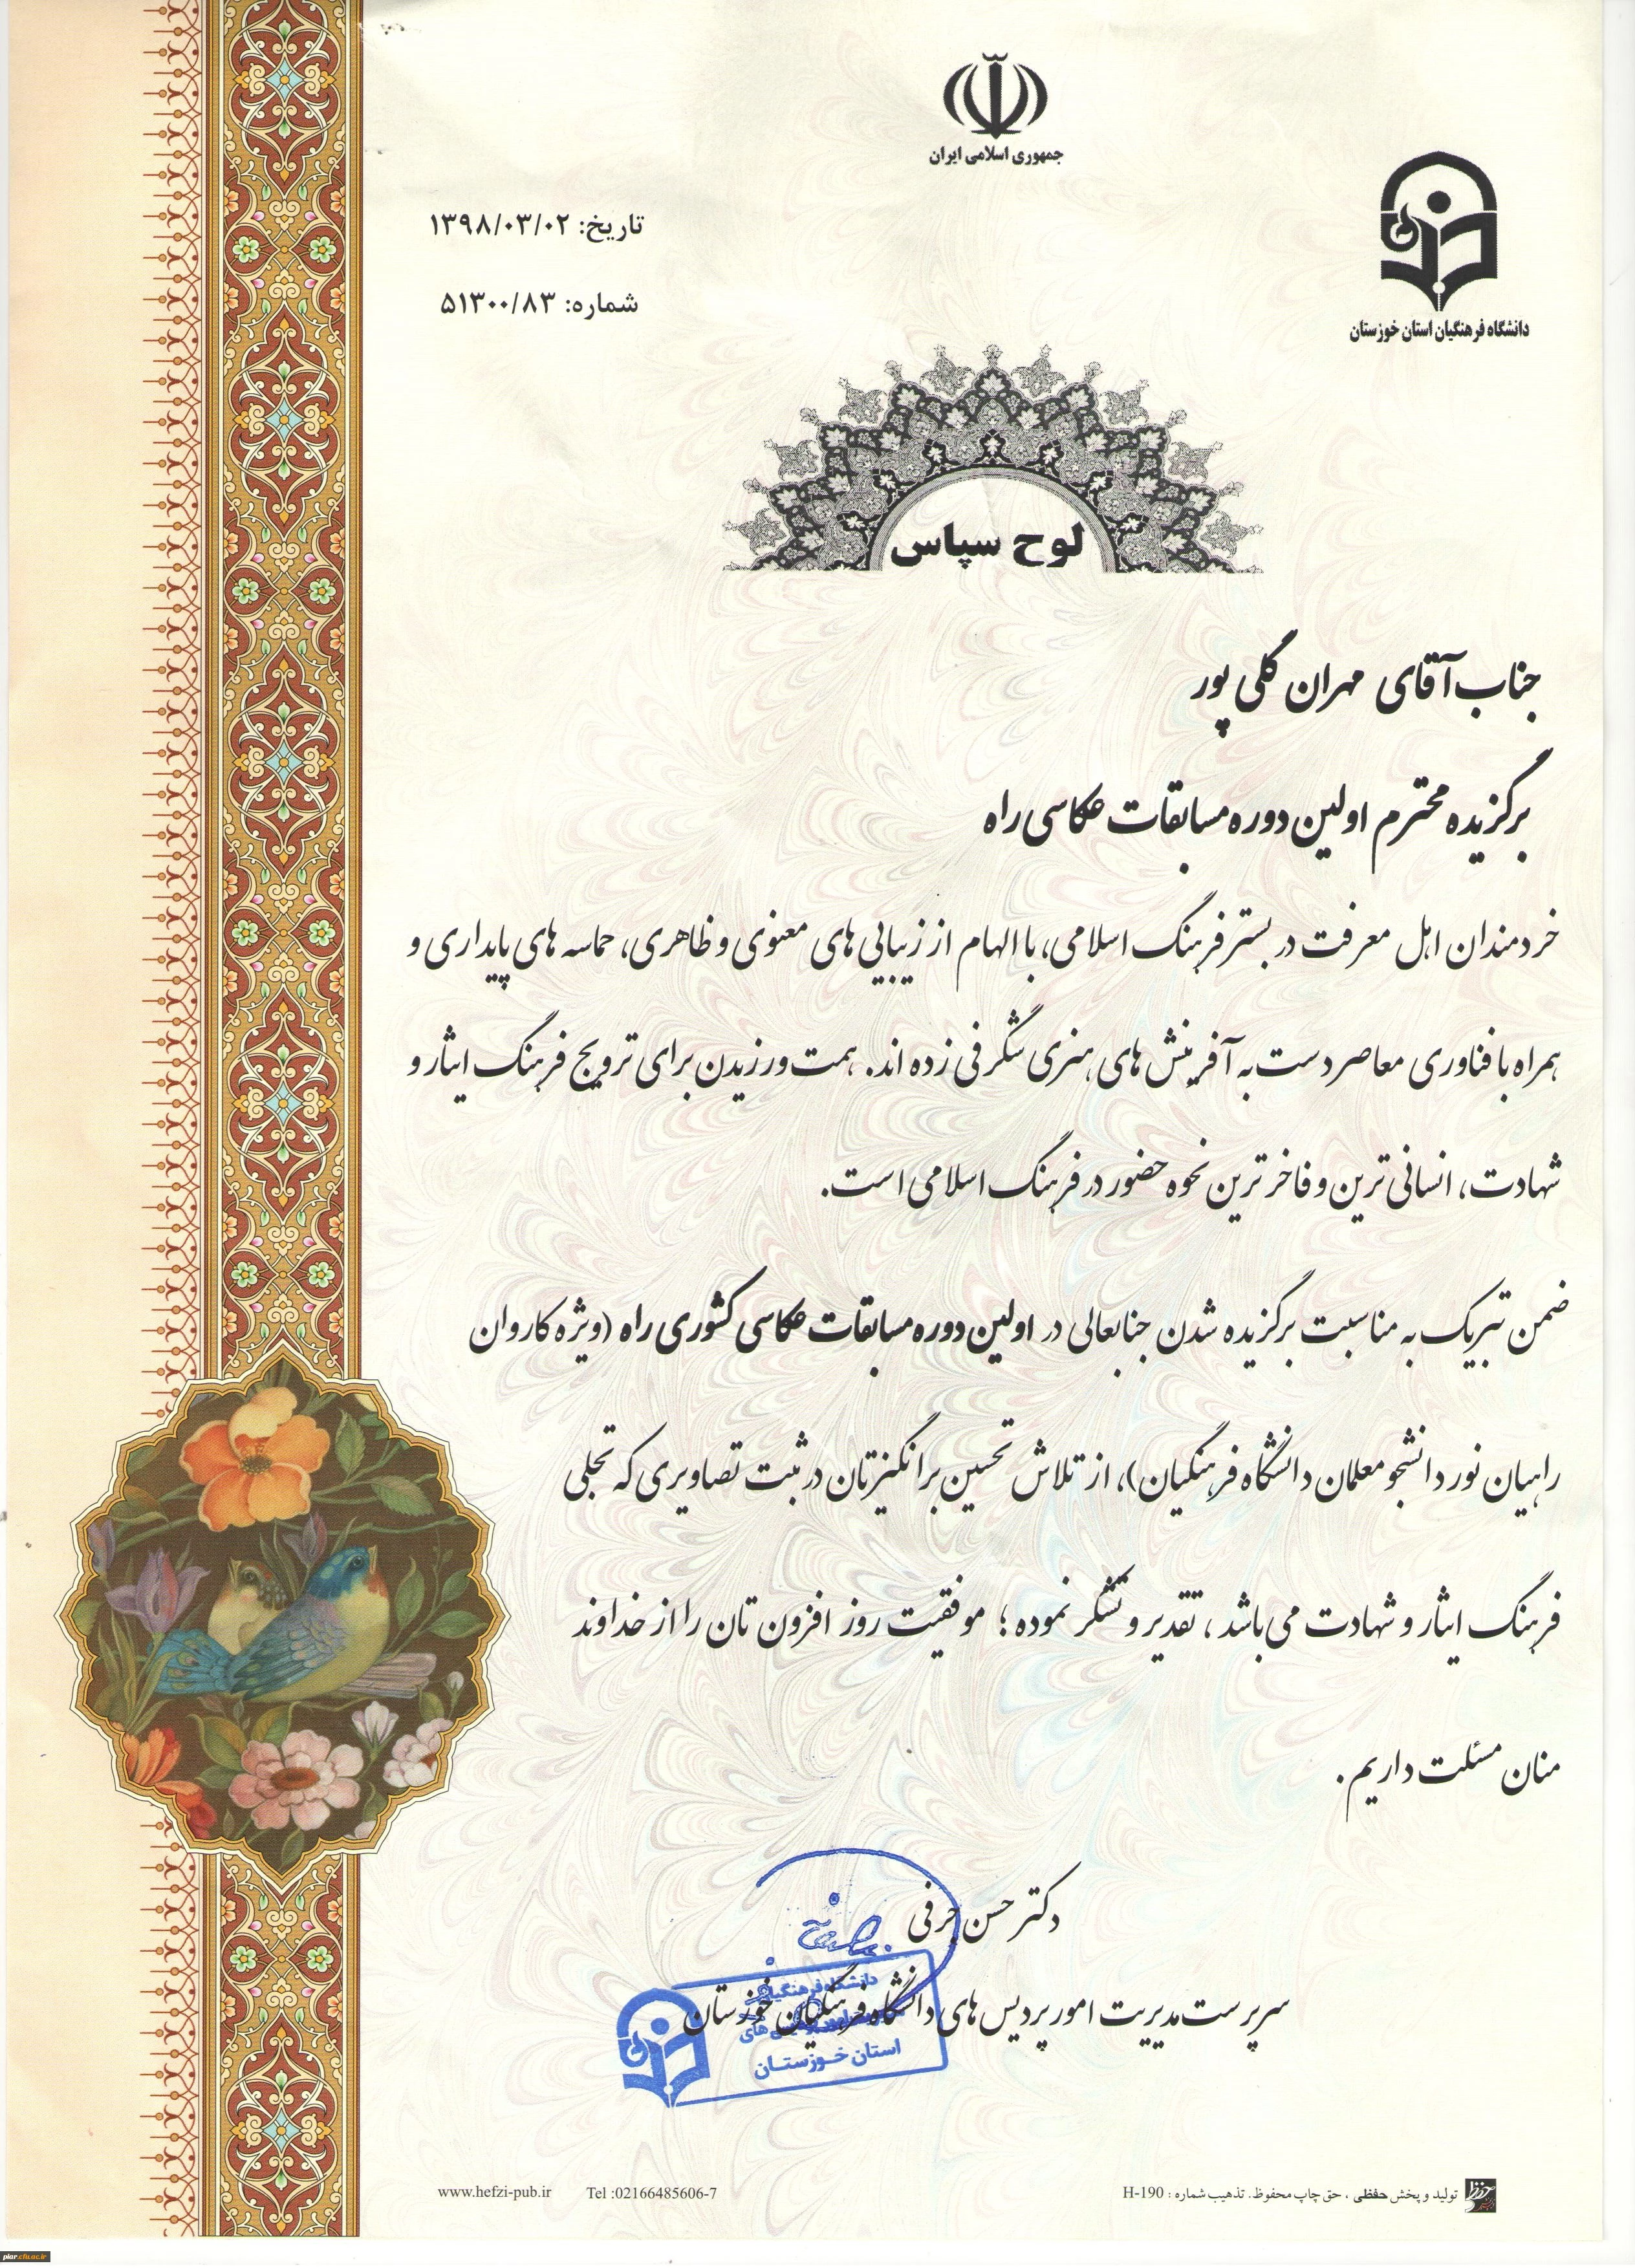 جمهوری اسلامی ایران
دانشگاه فرهنگیان استان خوزستان
تاریخ: ۱۳۹۸/۰۳/۰۲
شماره: ۵۱۳۰۰/۸۳
لوح سپاس
جناب آقای مهران گلی پور
برگزیده محترم اولین دوره مسابقات عکاسی راه
خردمندان اهل معرفت در بستر فرهنگ اسلامی، با الهام از زیبایی های معنوی و ظاهری، حماسه های پایداری و
همراه با فناوری معاصر دست به آفرینش های هنری شگرفی زده اند. همت ورزیدن برای ترویج فرهنگ ایثار و
شهادت، انسانی ترین و فاخر ترین نحوه حضور در فرهنگ اسلامی است.
ضمن تبریک به مناسبت برگزیده شدن جنابعالی در اولین دوره مسابقات عکاسی کشوری راه (ویژه کاروان
راهیان نور دانشجو معلمان دانشگاه فرهنگیان)، از تلاش تحسین برانگیزتان در ثبت تصاویری که تجلی
فرهنگ ایثار و شهادت می باشد، تقدیر و تشکر نموده؛ موفقیت روز افزون تان را از خداوند
منان مسئلت داریم.
دکتر حسن حرفی
سرپرست مدیریت امور پردیس های دانشگاه فرهنگیان خوزستان
دانشگاه فرهنگیان
استان خوزستان
تولید و پخش حفظی، حق چاپ محفوظ. تذهیب شماره: H-190
www.hefzi-pub.ir Tel :02166485606-7
piar.cfu.ac.ir